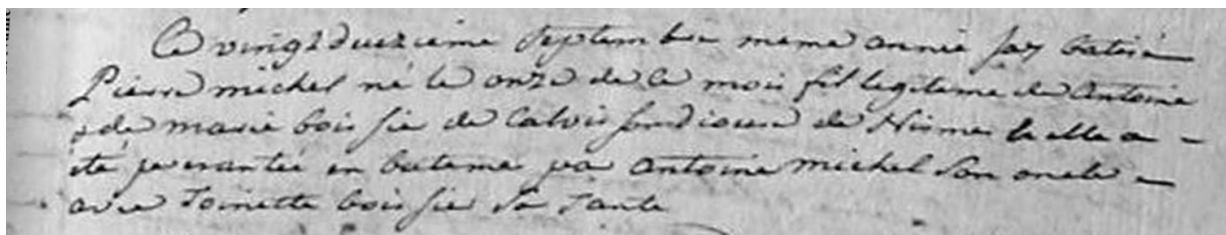 Ce vingt duexieme Septembre meme année jay batisé
Pierre michel né le onze de Ce mois fil legiteme de Antoine
& de marie boissie de Calvis fondioux de Nisme la elle a
eté presantée en bateme par Antoine Michel Son oncle
avec Toinette boissie Sa Tante